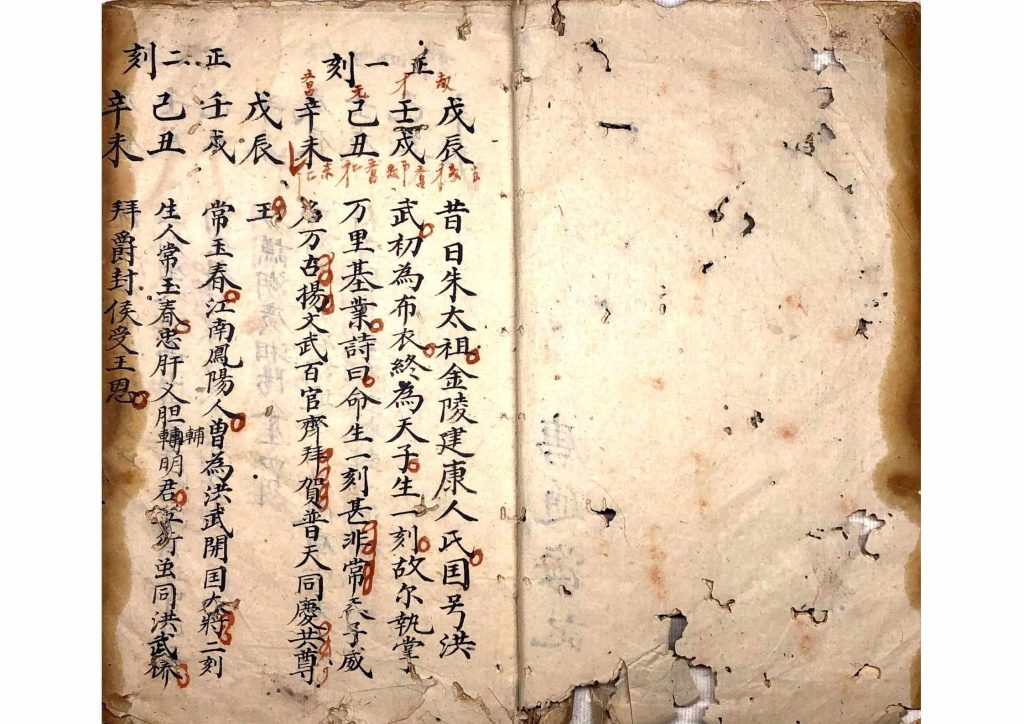 正一刻
戊辰 昔日朱太祖金陵建康人氏囯号洪
壬戍 武初為布衣終為天子生一刻故尔執掌
己丑 万里基業詩曰命生一刻甚非常天子威
辛未 万古揚文武百官齊拜賀普天同慶共尊
戊辰 王
正二刻
壬戍 常玉春江南鳳陽人曾為洪武開囯大將二刻
己丑 生人常玉春忠肝义胆輔明君行虽同洪武
辛未 拜爵封侯受王恩